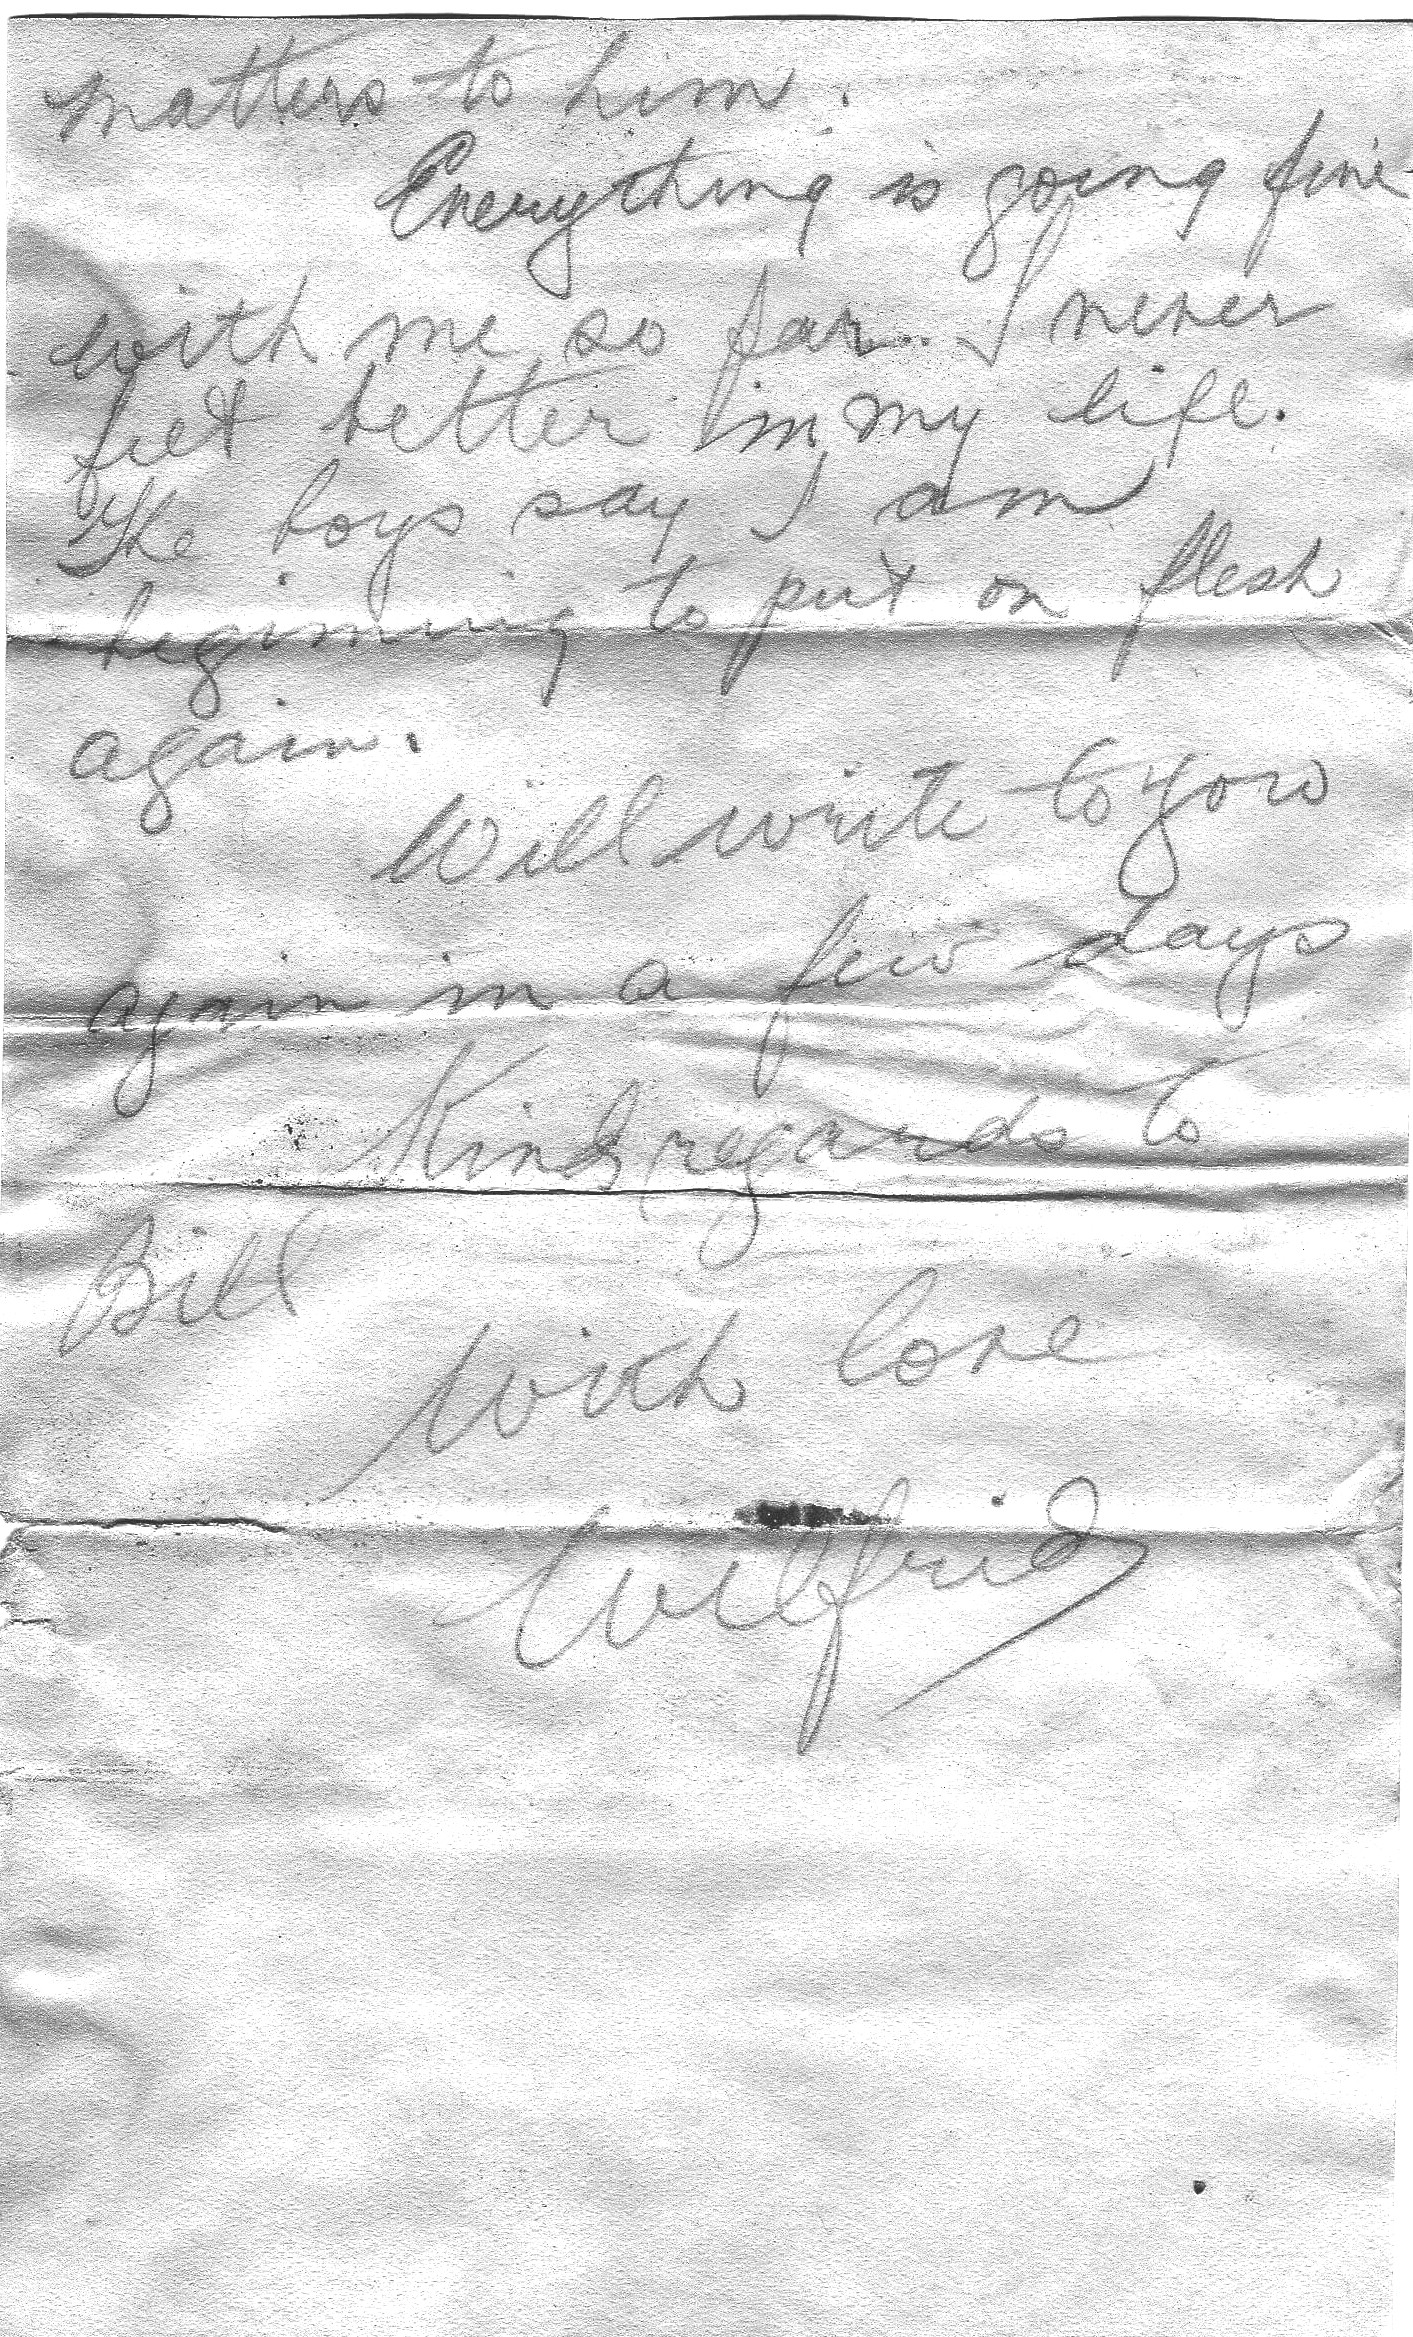 matters to him.
Everything is going fine
with me so far. I never
felt better in my life.
The boys say I am
beginning to put on flesh
again.
Will write to you
again in a few days
Kind regards to
Bill
With love
Wilfrid